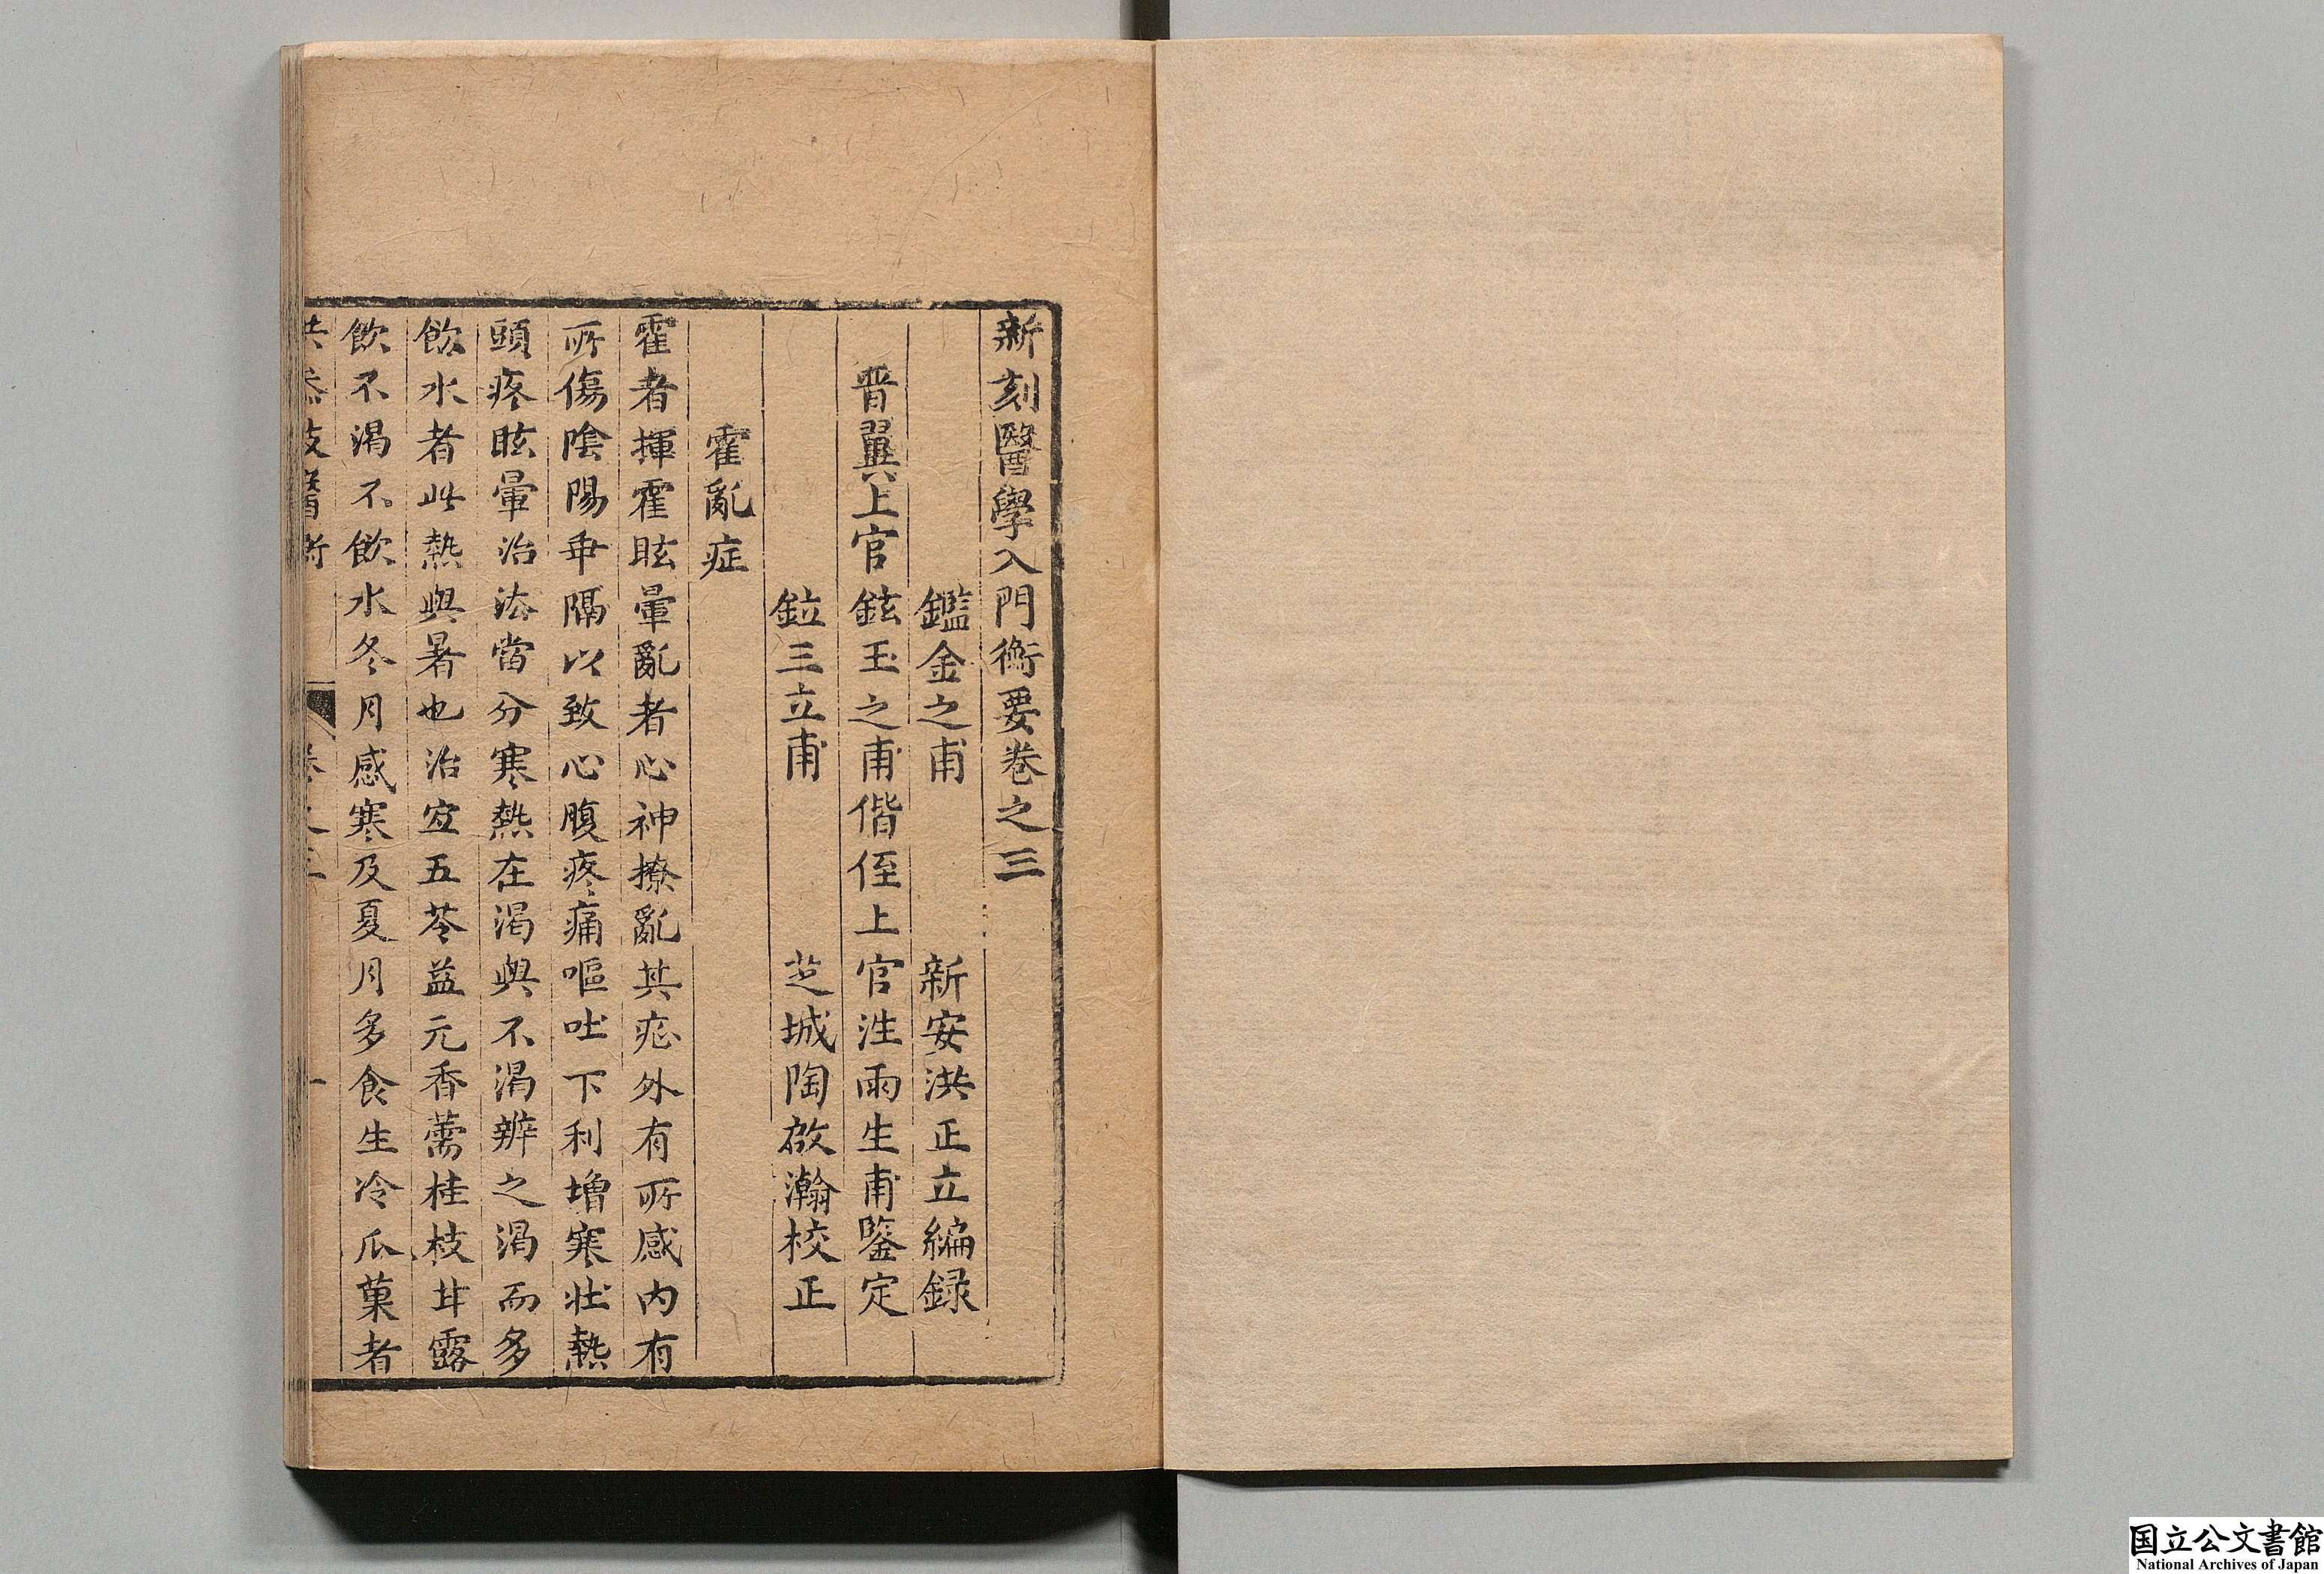 新刻醫學入門衡要卷之三
鑑金之甫　新安洪正立編録
晋翼上官鉉玉之甫偕侄上官泩雨生甫鑒定
鉝三立甫　芝城陶啟瀚校正
霍亂症
霍者揮霍眩暈亂者心神撩亂其症外有所感内有
所傷陰陽乖隔以致心腹疼痛嘔吐下利增寒壯熱
頭疼眩暈治法當分寒熱在渴與不渴辨之渴而多
飲水者此熱與暑也治宜五苓益元香薷桂枝甘露
飲不渴不飲水冬月感寒及夏月多食生冷瓜菓者
国立公文書館
National Archives of Japan